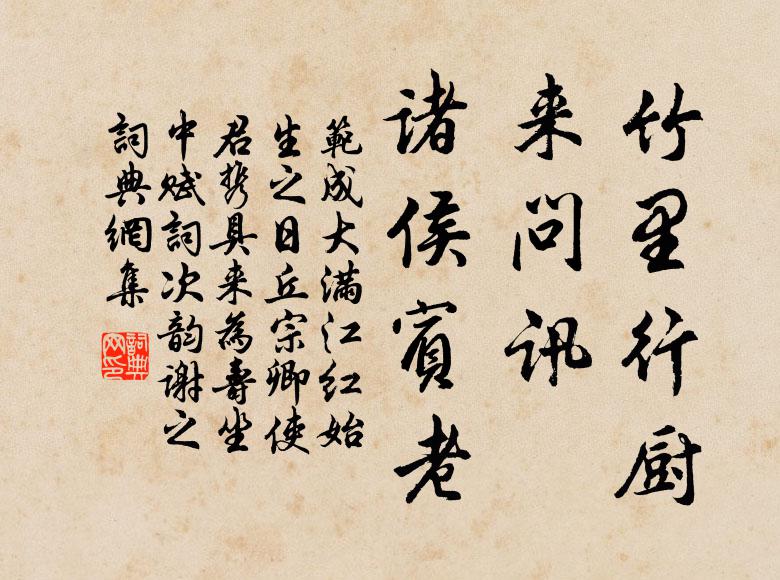 竹里行厨
来问讯
诸侯宾老
範成大满江红始
生之日丘宗卿使
君携具来為壽坐
中赋詞次韵谢之
詞典網集
詞典网印